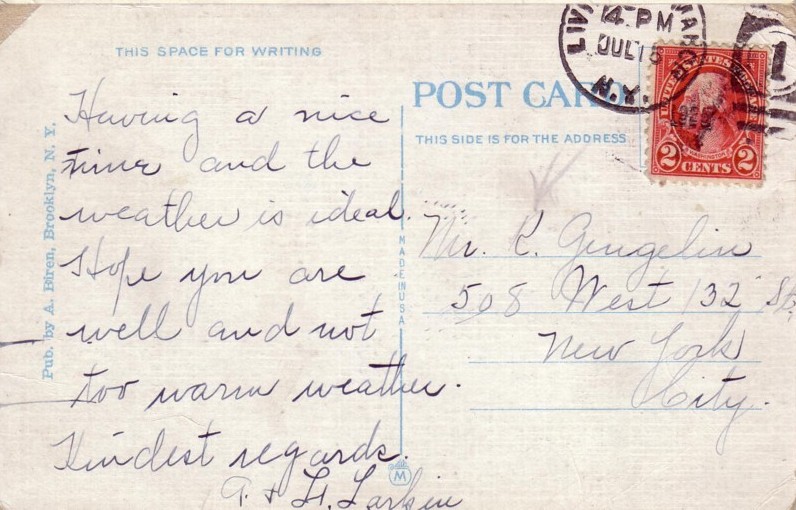 THIS SPACE FOR WRITING
Having a nice
time and the
weather is ideal.
Hope you are
well and not
too warm weather.
Kindest regards.
Larkin
Pub. by A. Büren, Brooklyn, N. Y.
MADE IN USA
M
POST CARD
THIS SIDE IS FOR THE ADDRESS
4 PM
JUL 15
N.Y.
1
UNITED STATES POSTAGE
WASHINGTON
2 CENTS 2
Mr. K. Gengelin
508 West 132 St.
New York
City.